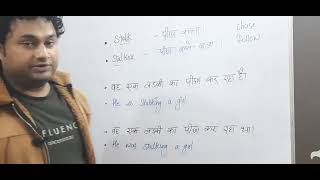 • Stalk - पीछा करना chase
• Stalker - पीछा करने वाला। follow
• वह एक लडकी का पीछा कर रहा है।
• He is stalking a girl
• वह एक लडकी का पीछा कर रहा था।
• He was stalking a girl
FLUENCE